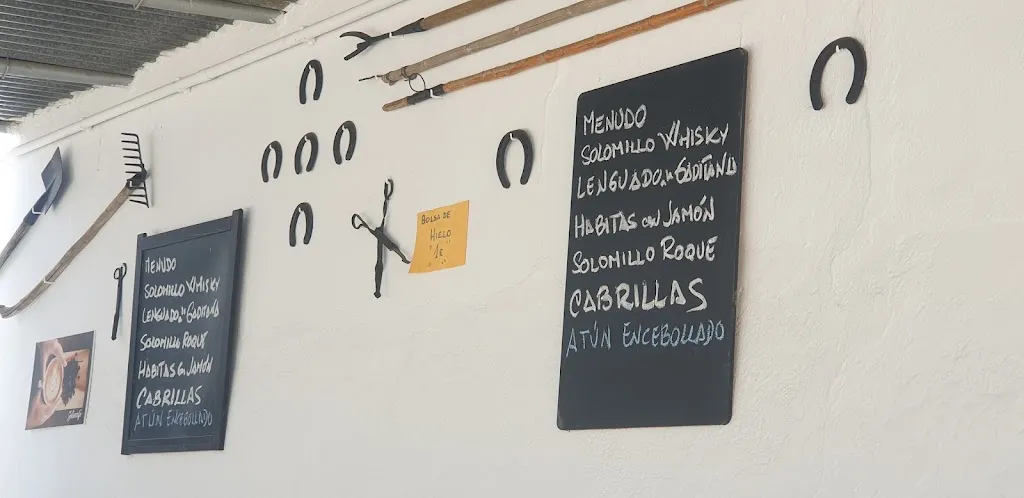 MENUDO
SOLOMILLO WHISKY
LENGUADO a la GADITANA
SOLOMILLO ROQUE
HABITAS con JAMÓN
CABRILLAS
ATÚN ENCEBOLLADO
BOLSA DE
HIELO
"1€"
MENUDO
SOLOMILLO WHISKY
LENGUADO a la GADITANA
HABITAS con JAMÓN
SOLOMILLO ROQUE
CABRILLAS
ATÚN ENCEBOLLADO